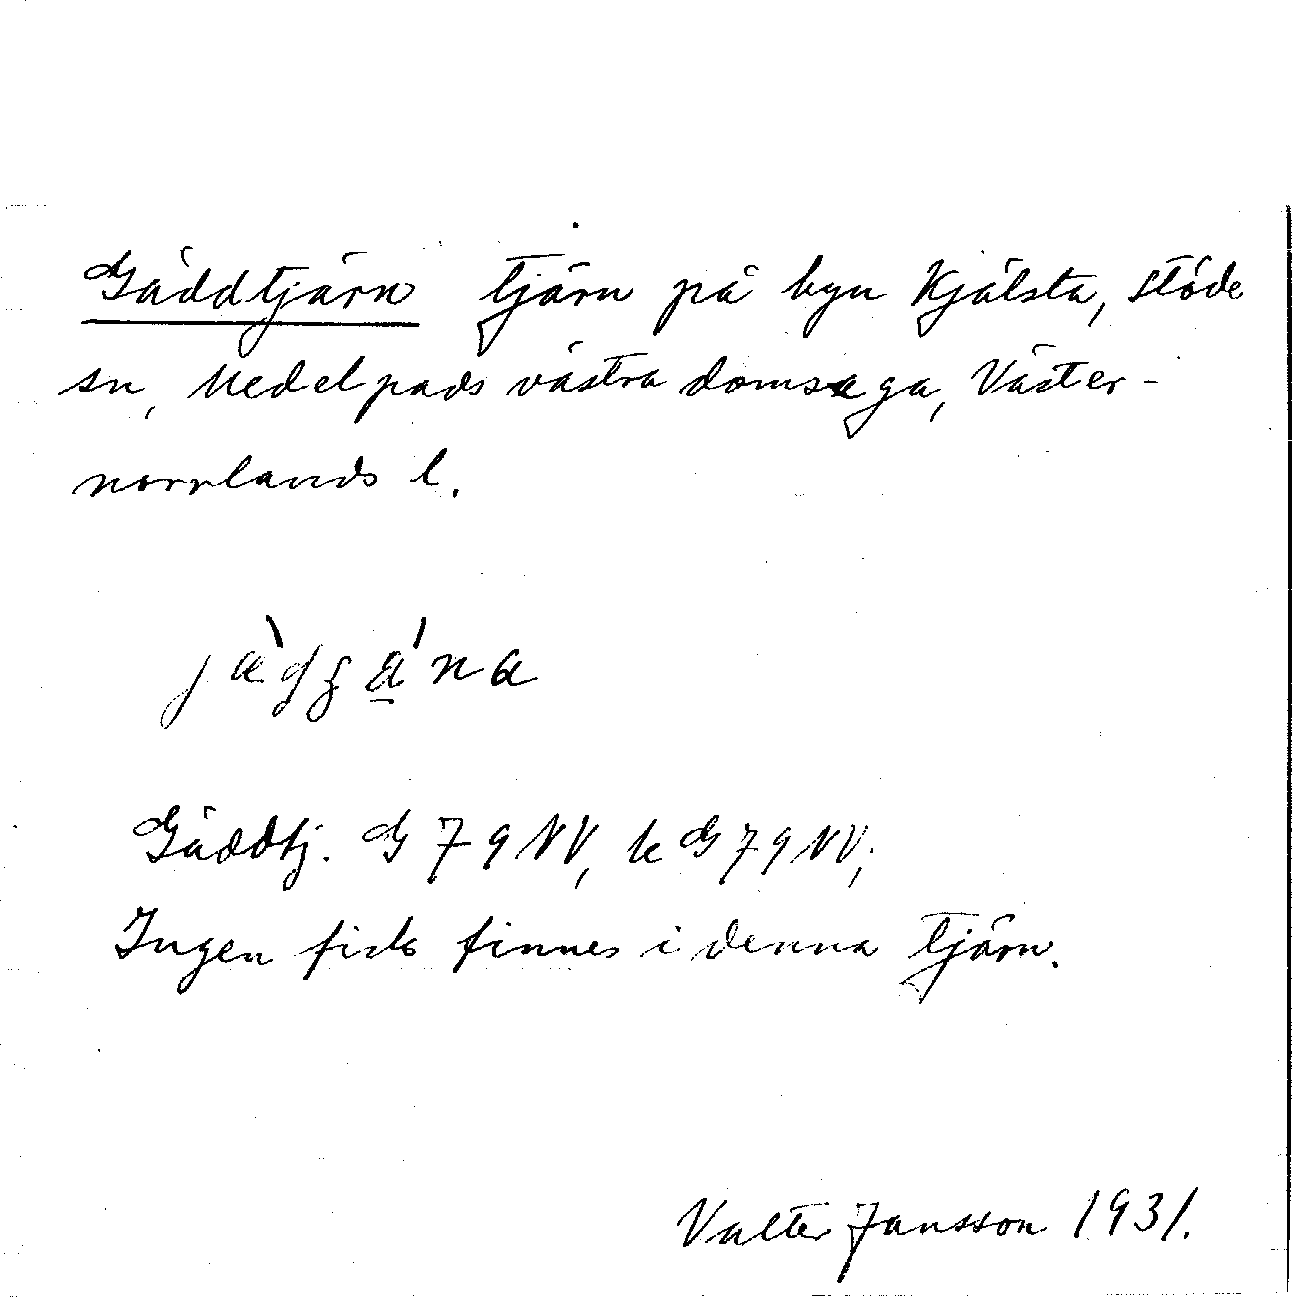 Gäddtjärn tjärn på byn Kjälsta, Stöde
sn, Medelpads västra domsaga, Väster-
norrlands l.
Gäddtj. G 79 NV, k G 79 NV;
Ingen fisk finnes i denna tjärn.
Valter Jansson 1931.